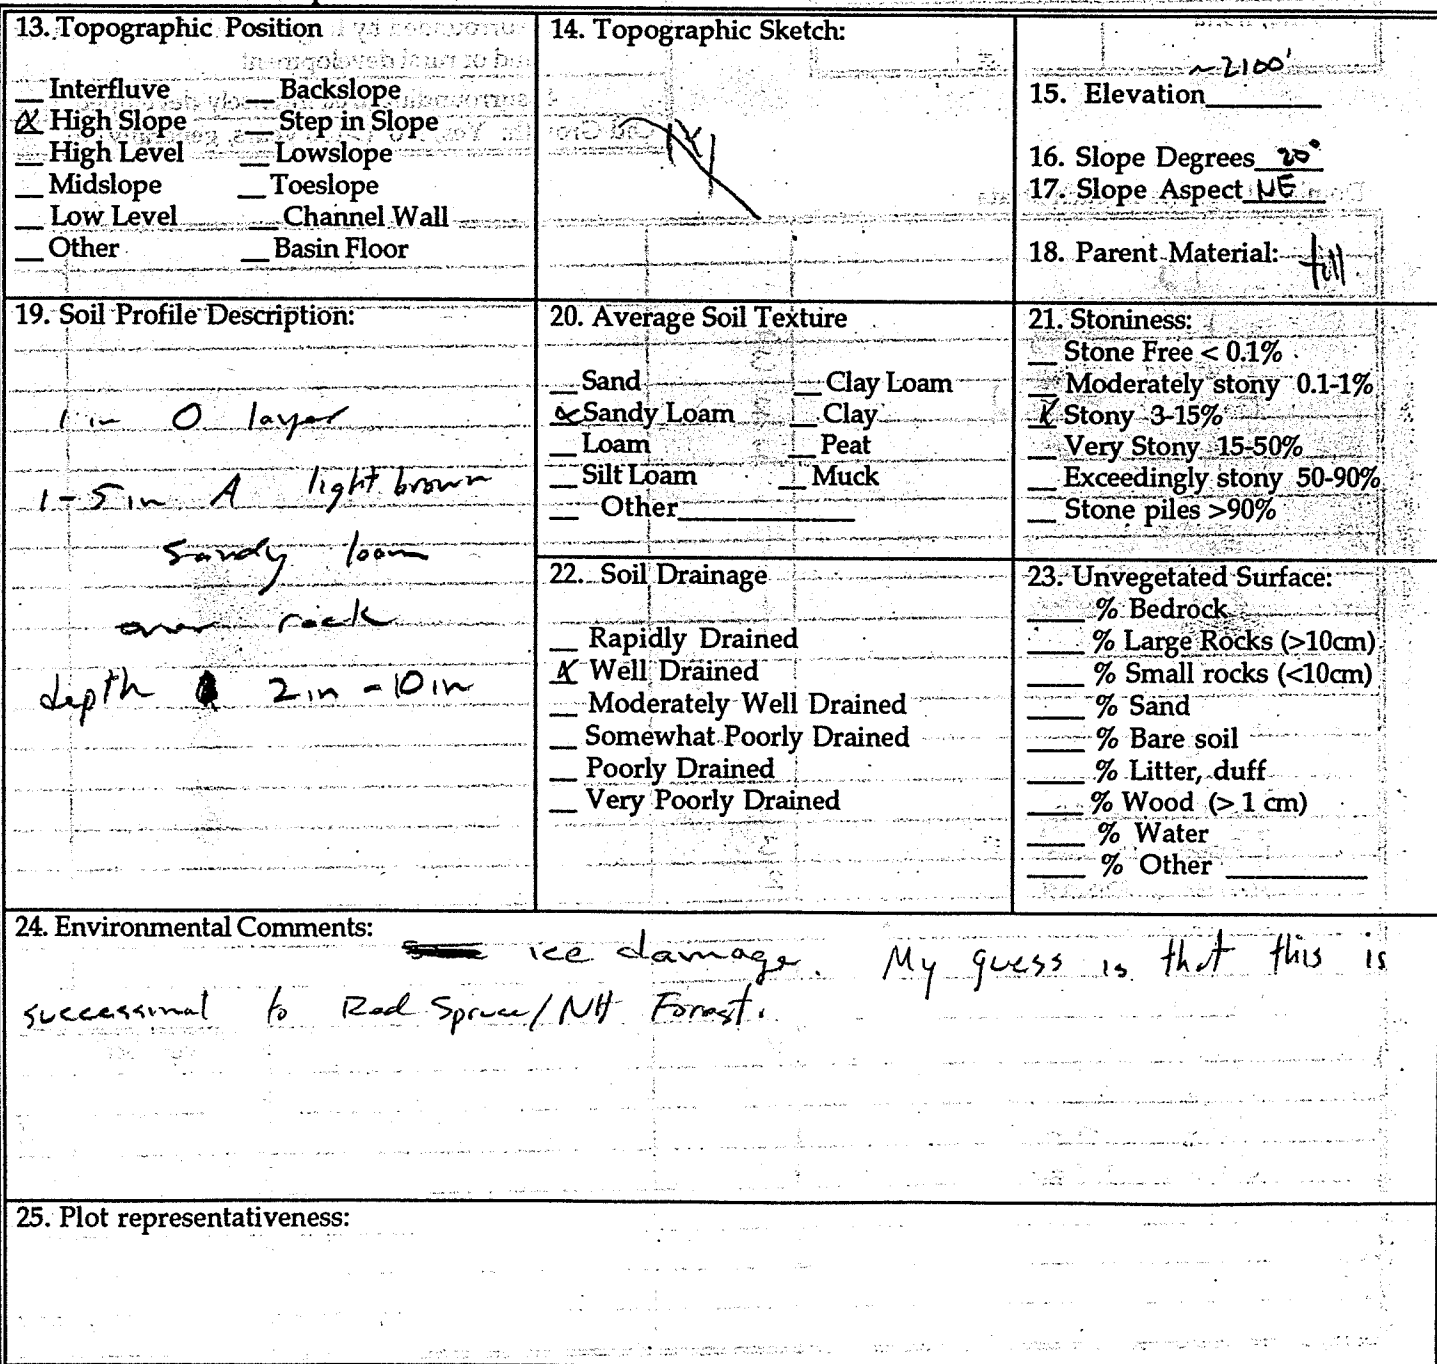 13. Topographic Position
__ Interfluve __ Backslope
X High Slope __ Step in Slope
__ High Level __ Lowslope
__ Midslope __ Toeslope
__ Low Level __ Channel Wall
__ Other __ Basin Floor
14. Topographic Sketch:
~2100'
15. Elevation________
16. Slope Degrees 20°
17. Slope Aspect NE
18. Parent Material: till
19. Soil Profile Description:
1 in O layer
1-5 in A light brown
sandy loam
over rock
depth 2in - 10in
20. Average Soil Texture
__ Sand __ Clay Loam
X Sandy Loam __ Clay
__ Loam __ Peat
__ Silt Loam __ Muck
__ Other____________
21. Stoniness:
__ Stone Free < 0.1%
__ Moderately stony 0.1-1%
X Stony 3-15%
__ Very Stony 15-50%
__ Exceedingly stony 50-90%
__ Stone piles >90%
22. Soil Drainage
__ Rapidly Drained
X Well Drained
__ Moderately Well Drained
__ Somewhat Poorly Drained
__ Poorly Drained
__ Very Poorly Drained
23. Unvegetated Surface:
____ % Bedrock
____ % Large Rocks (>10cm)
____ % Small rocks (<10cm)
____ % Sand
____ % Bare soil
____ % Litter, duff
____ % Wood (> 1 cm)
____ % Water
____ % Other __________
24. Environmental Comments:
ice damage. My guess is that this is
successional to Red Spruce/NH Forest.
25. Plot representativeness: